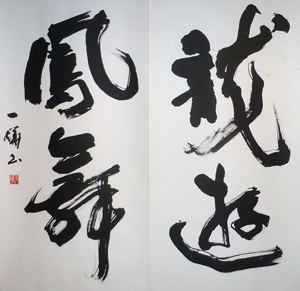 龍遊
鳳舞